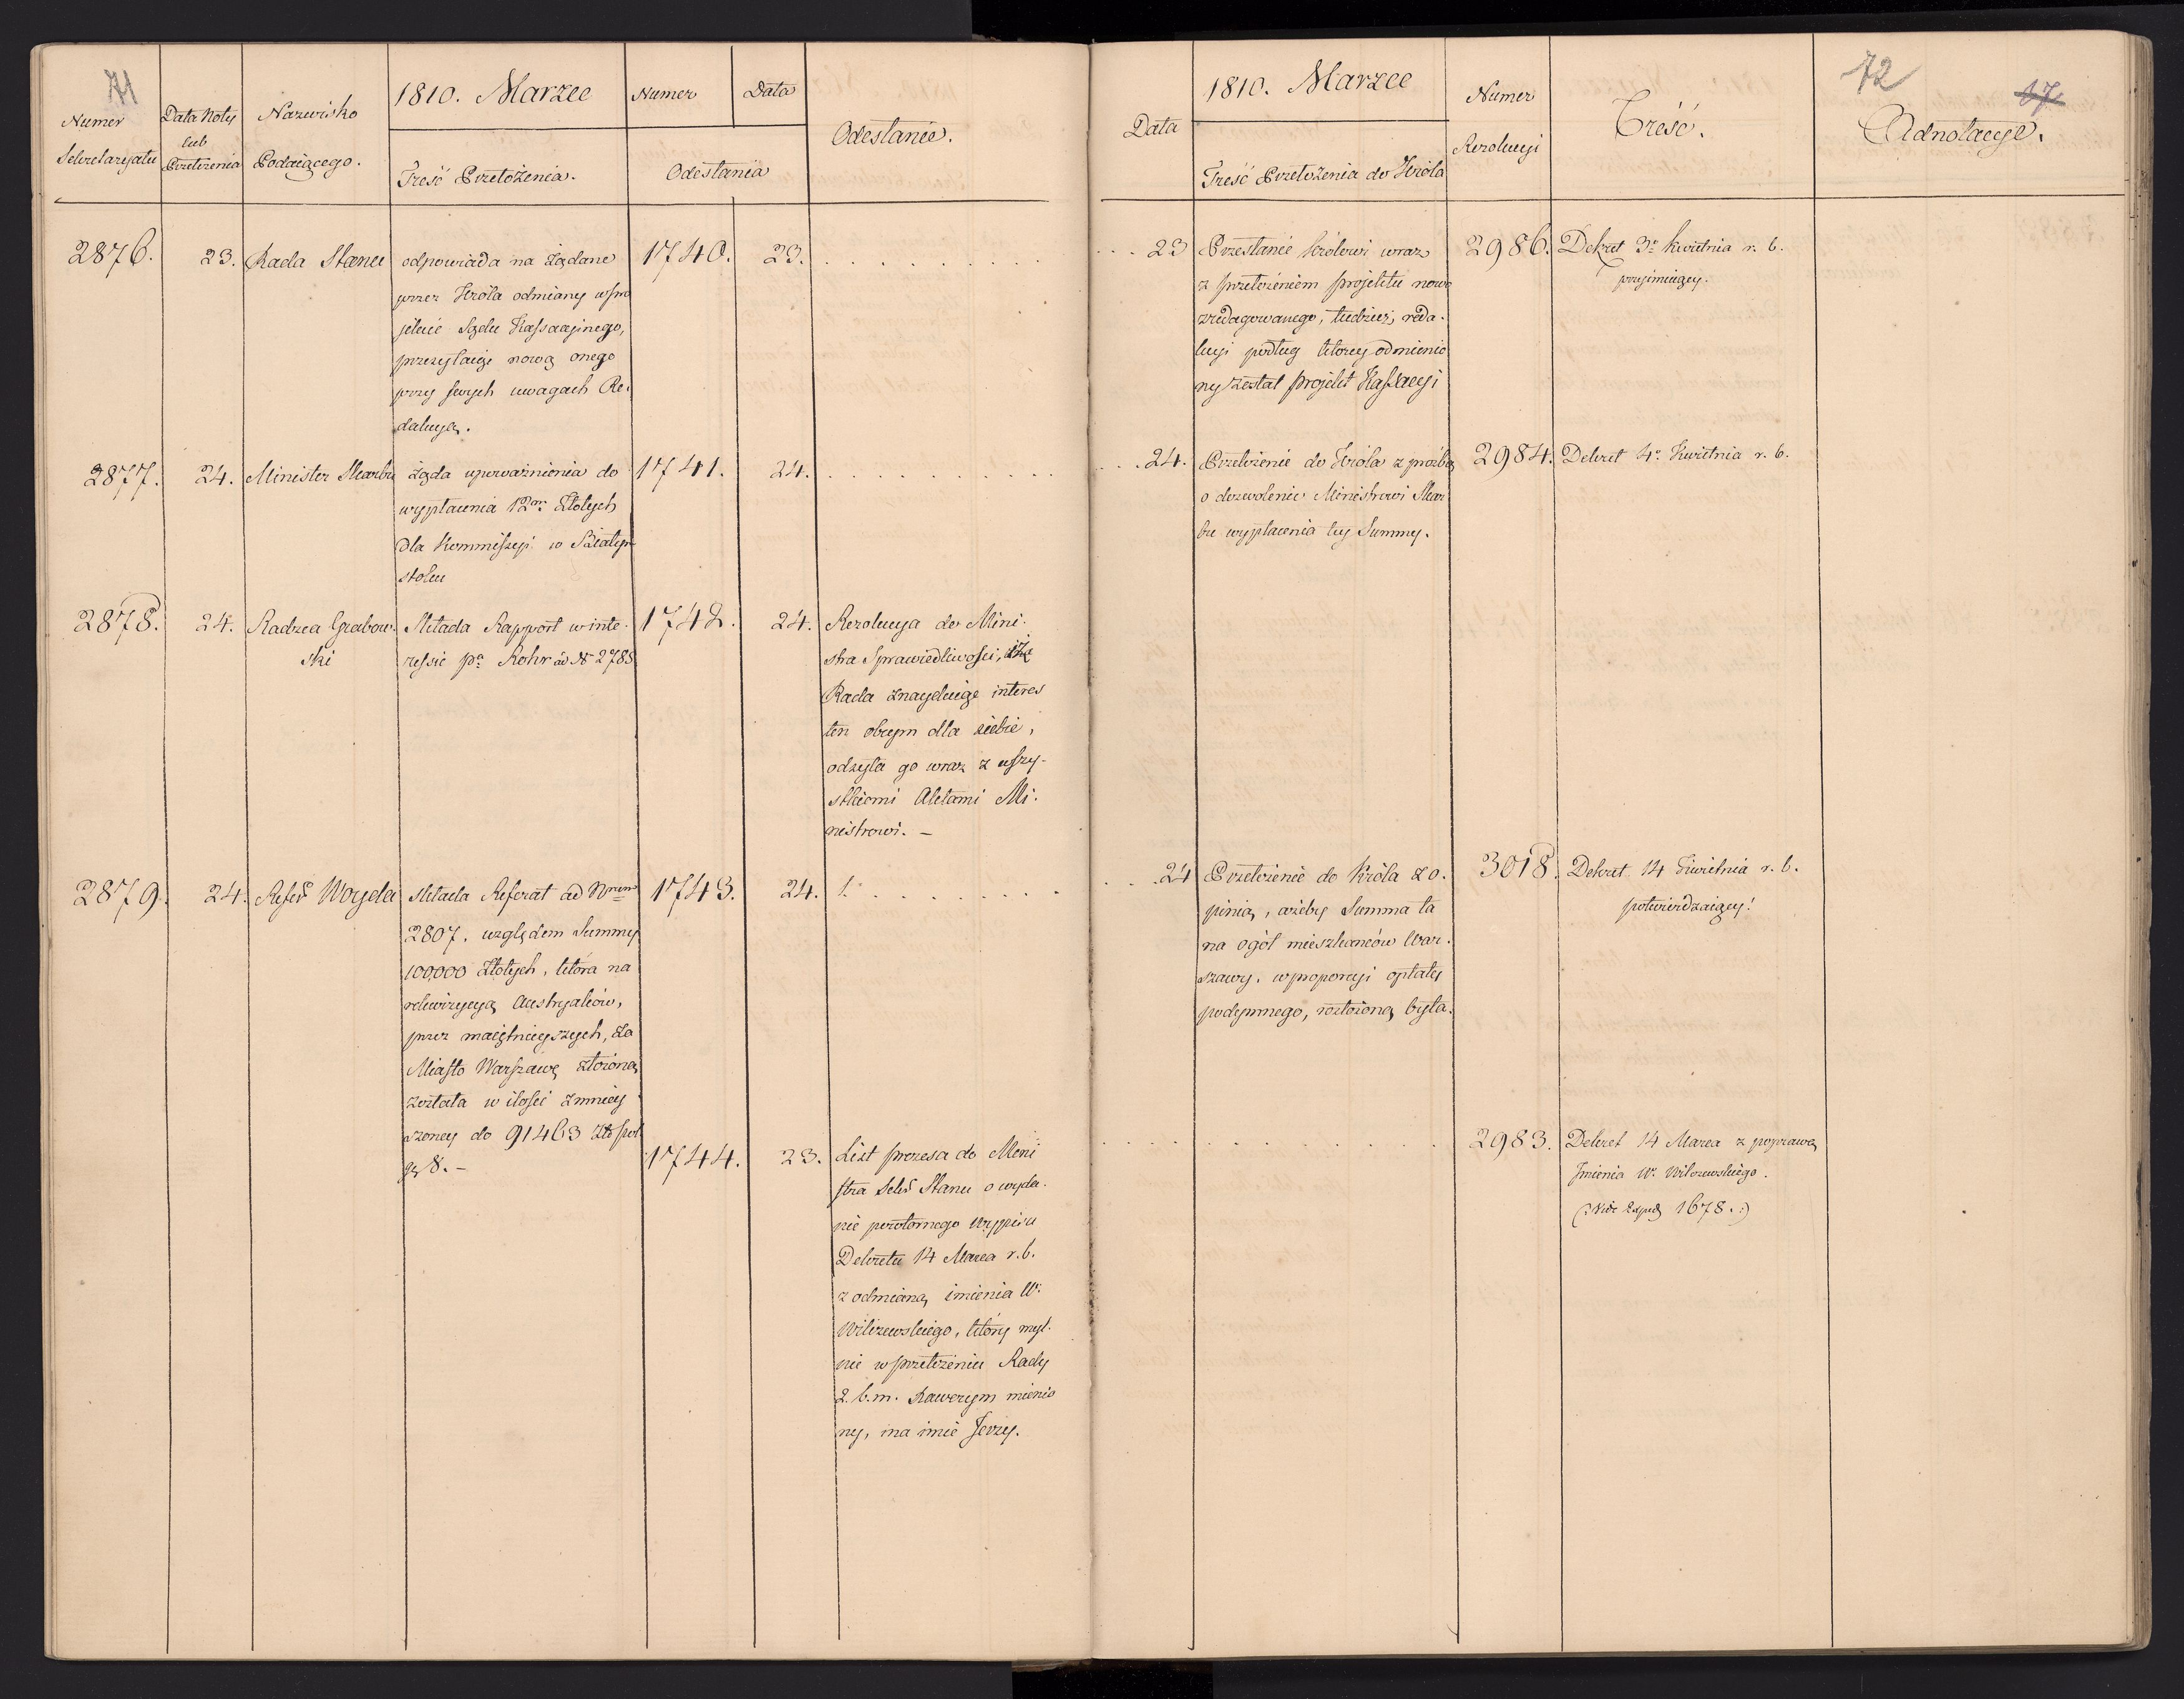 71
Numer
Sekretaryatu
Data Noty
lub
Przełożenia
Nazwisko
Podaiącego.
1810. Marzec
Treść Przełożenia.
Numer
Data
Odesłania
Odesłanie.
2876.
23.
Rada Stanu
odpowiada na żądane
przez Króla odmiany w pro
jekcie Sądu Kassacyinego,
przesyłaiąc nową onego
przy swych uwagach Re-
dakcyą.
1740.
23.
2877.
24.
Minister Skarbu
żąda upoważnienia do
wypłacenia 12m Złotych
dla Kommissyi w Białym
stoku
1741.
24.
2878.
24.
Radzca Grabow-
ski
Składa Rapport w inte-
ressie pa Rohr ad N 2785
1742.
24.
Rezolucya do Mini-
stra Sprawiedliwości, iż
Rada znayduiąc interes
ten obcym dla siebie,
odsyła go wraz z wszy-
stkiemi Aktami Mi-
nistrowi. –
2879.
24.
Refer Woyda
składa Referat ad Nrum
2807. względem Summy
100,000 złotych, która na
rekwizycyą Austryaków,
przez maiętnieyszych, za
Miasto Warszawę złożoną
została w ilości zmniey
szoney do 91463 Złt pol
gr 8. –
1743.
24.
1744.
23.
List prezesa do Mini
stra Sekr Stanu o wyda-
nie powtórnego Wypisu
Dekretu 14 Marca r. b.
z odmianą imienia W.
Wilczewskiego, który myl-
nie w przełożeniu Rady
2. b. m. Xawerym mienio
ny, ma imie Jerzy.
72
17
Data
1810. Marzec
Treść Przełożenia do Króla
Numer
Rezolucyi
Treść.
Adnotacye.
23
Przesłanie Królowi wraz
z przełożeniem projektu nowo
zredagowanego, tudzież redak-
cyi podług którey odmienio
ny został projekt Kassacyi
2986.
Dekret 3o Kwietnia r. b.
przyimuiący.
24.
Przełożenie do Króla z prośbą
o dozwolenie Ministrowi Skar
bu wypłacenia tey Summy.
2984.
Dekret 4o Kwietnia r. b.
24
Przełożenie do Króla z o-
pinią, ażeby Summa ta
na ogół mieszkańców War-
szawy, w proporcyi opłaty
podymnego, rozłożoną była.
3018.
Dekret 14 Kwietnia r. b.
potwierdzaiący!
2983.
Dekret 14 Marca z poprawą
Imienia W. Wilczewskiego.
(: Vide Exped 1678. :)